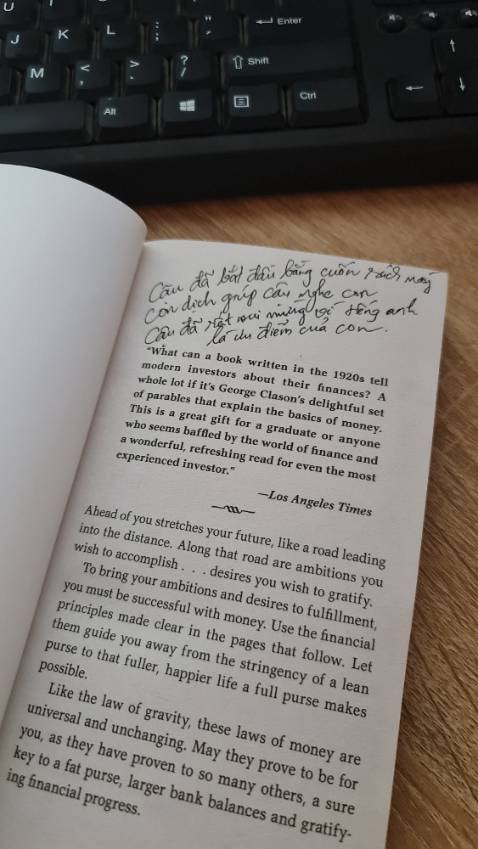 U
Enter
J
K
L
:
;
"
'
M
<
,
>
.
?
/
Shift
Alt
Ctrl
Cậu đã bắt đầu bằng cuốn sách này
còn dịch giúp cậu nghe con
Cậu đã rất vui mừng vì tiếng anh
là ưu điểm của con.
"What can a book written in the 1920s tell
modern investors about their finances? A
whole lot if it's George Clason's delightful set
of parables that explain the basics of money.
This is a great gift for a graduate or anyone
who seems baffled by the world of finance and
a wonderful, refreshing read for even the most
experienced investor."
—Los Angeles Times
Ahead of you stretches your future, like a road leading
into the distance. Along that road are ambitions you
wish to accomplish . . . desires you wish to gratify.
To bring your ambitions and desires to fulfillment,
you must be successful with money. Use the financial
principles made clear in the pages that follow. Let
them guide you away from the stringency of a lean
purse to that fuller, happier life a full purse makes
possible.
Like the law of gravity, these laws of money are
universal and unchanging. May they prove to be for
you, as they have proven to so many others, a sure
key to a fat purse, larger bank balances and gratify-
ing financial progress.